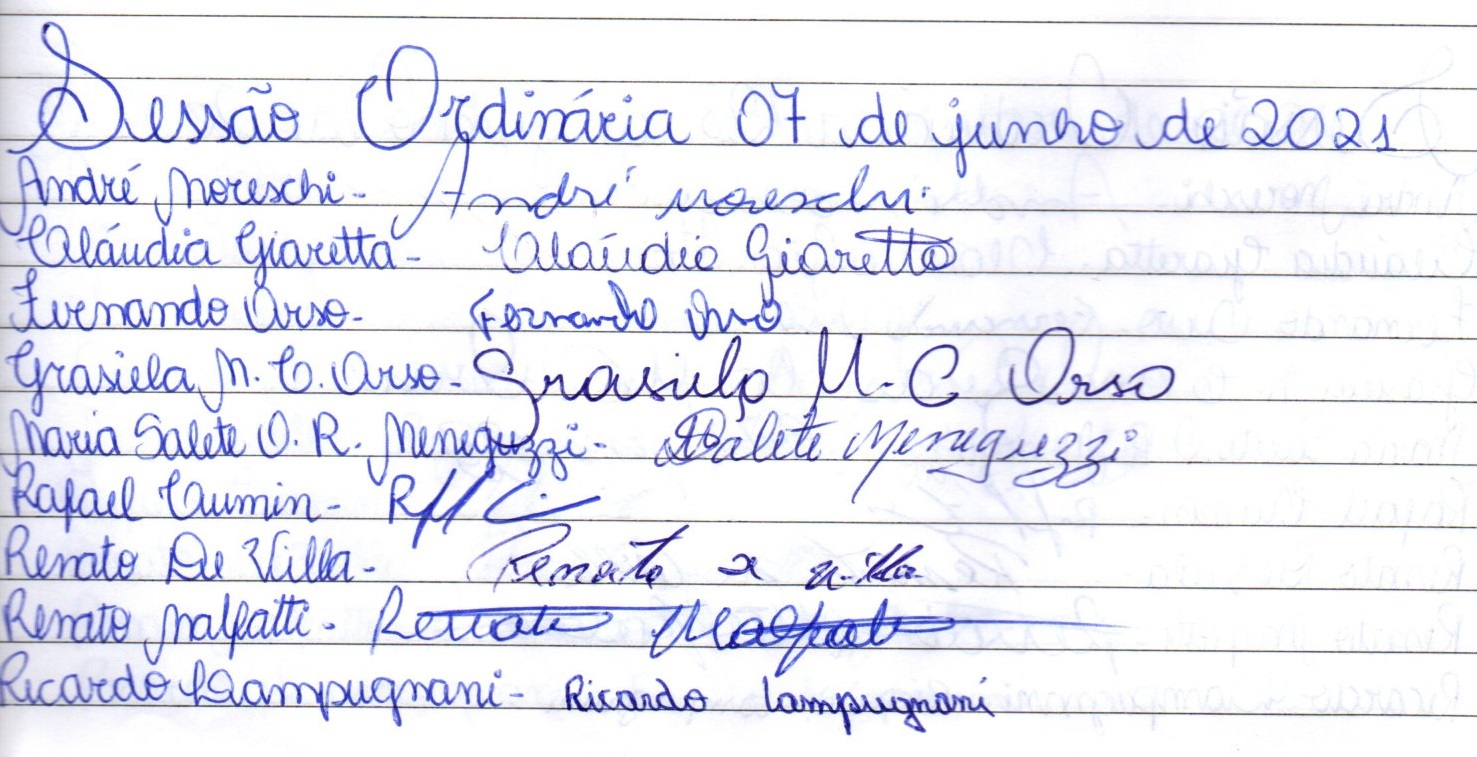 Sessão Ordinária 07 de junho de 2021
André Moreschi - André Moreschi
Claúdia Giaretta - Claúdia Giaretta
Fernando Orso - Fernando Orso
Grasiela M. C. Orso - Grasiela M. C Orso
Maria Salete O. R. Meneguzzi - Salete Meneguzzi
Rafael Cumin -
Renato De Villa - Renato
Renato Malfatti - Renato
Ricardo Lampugnani - Ricardo Lampugnani